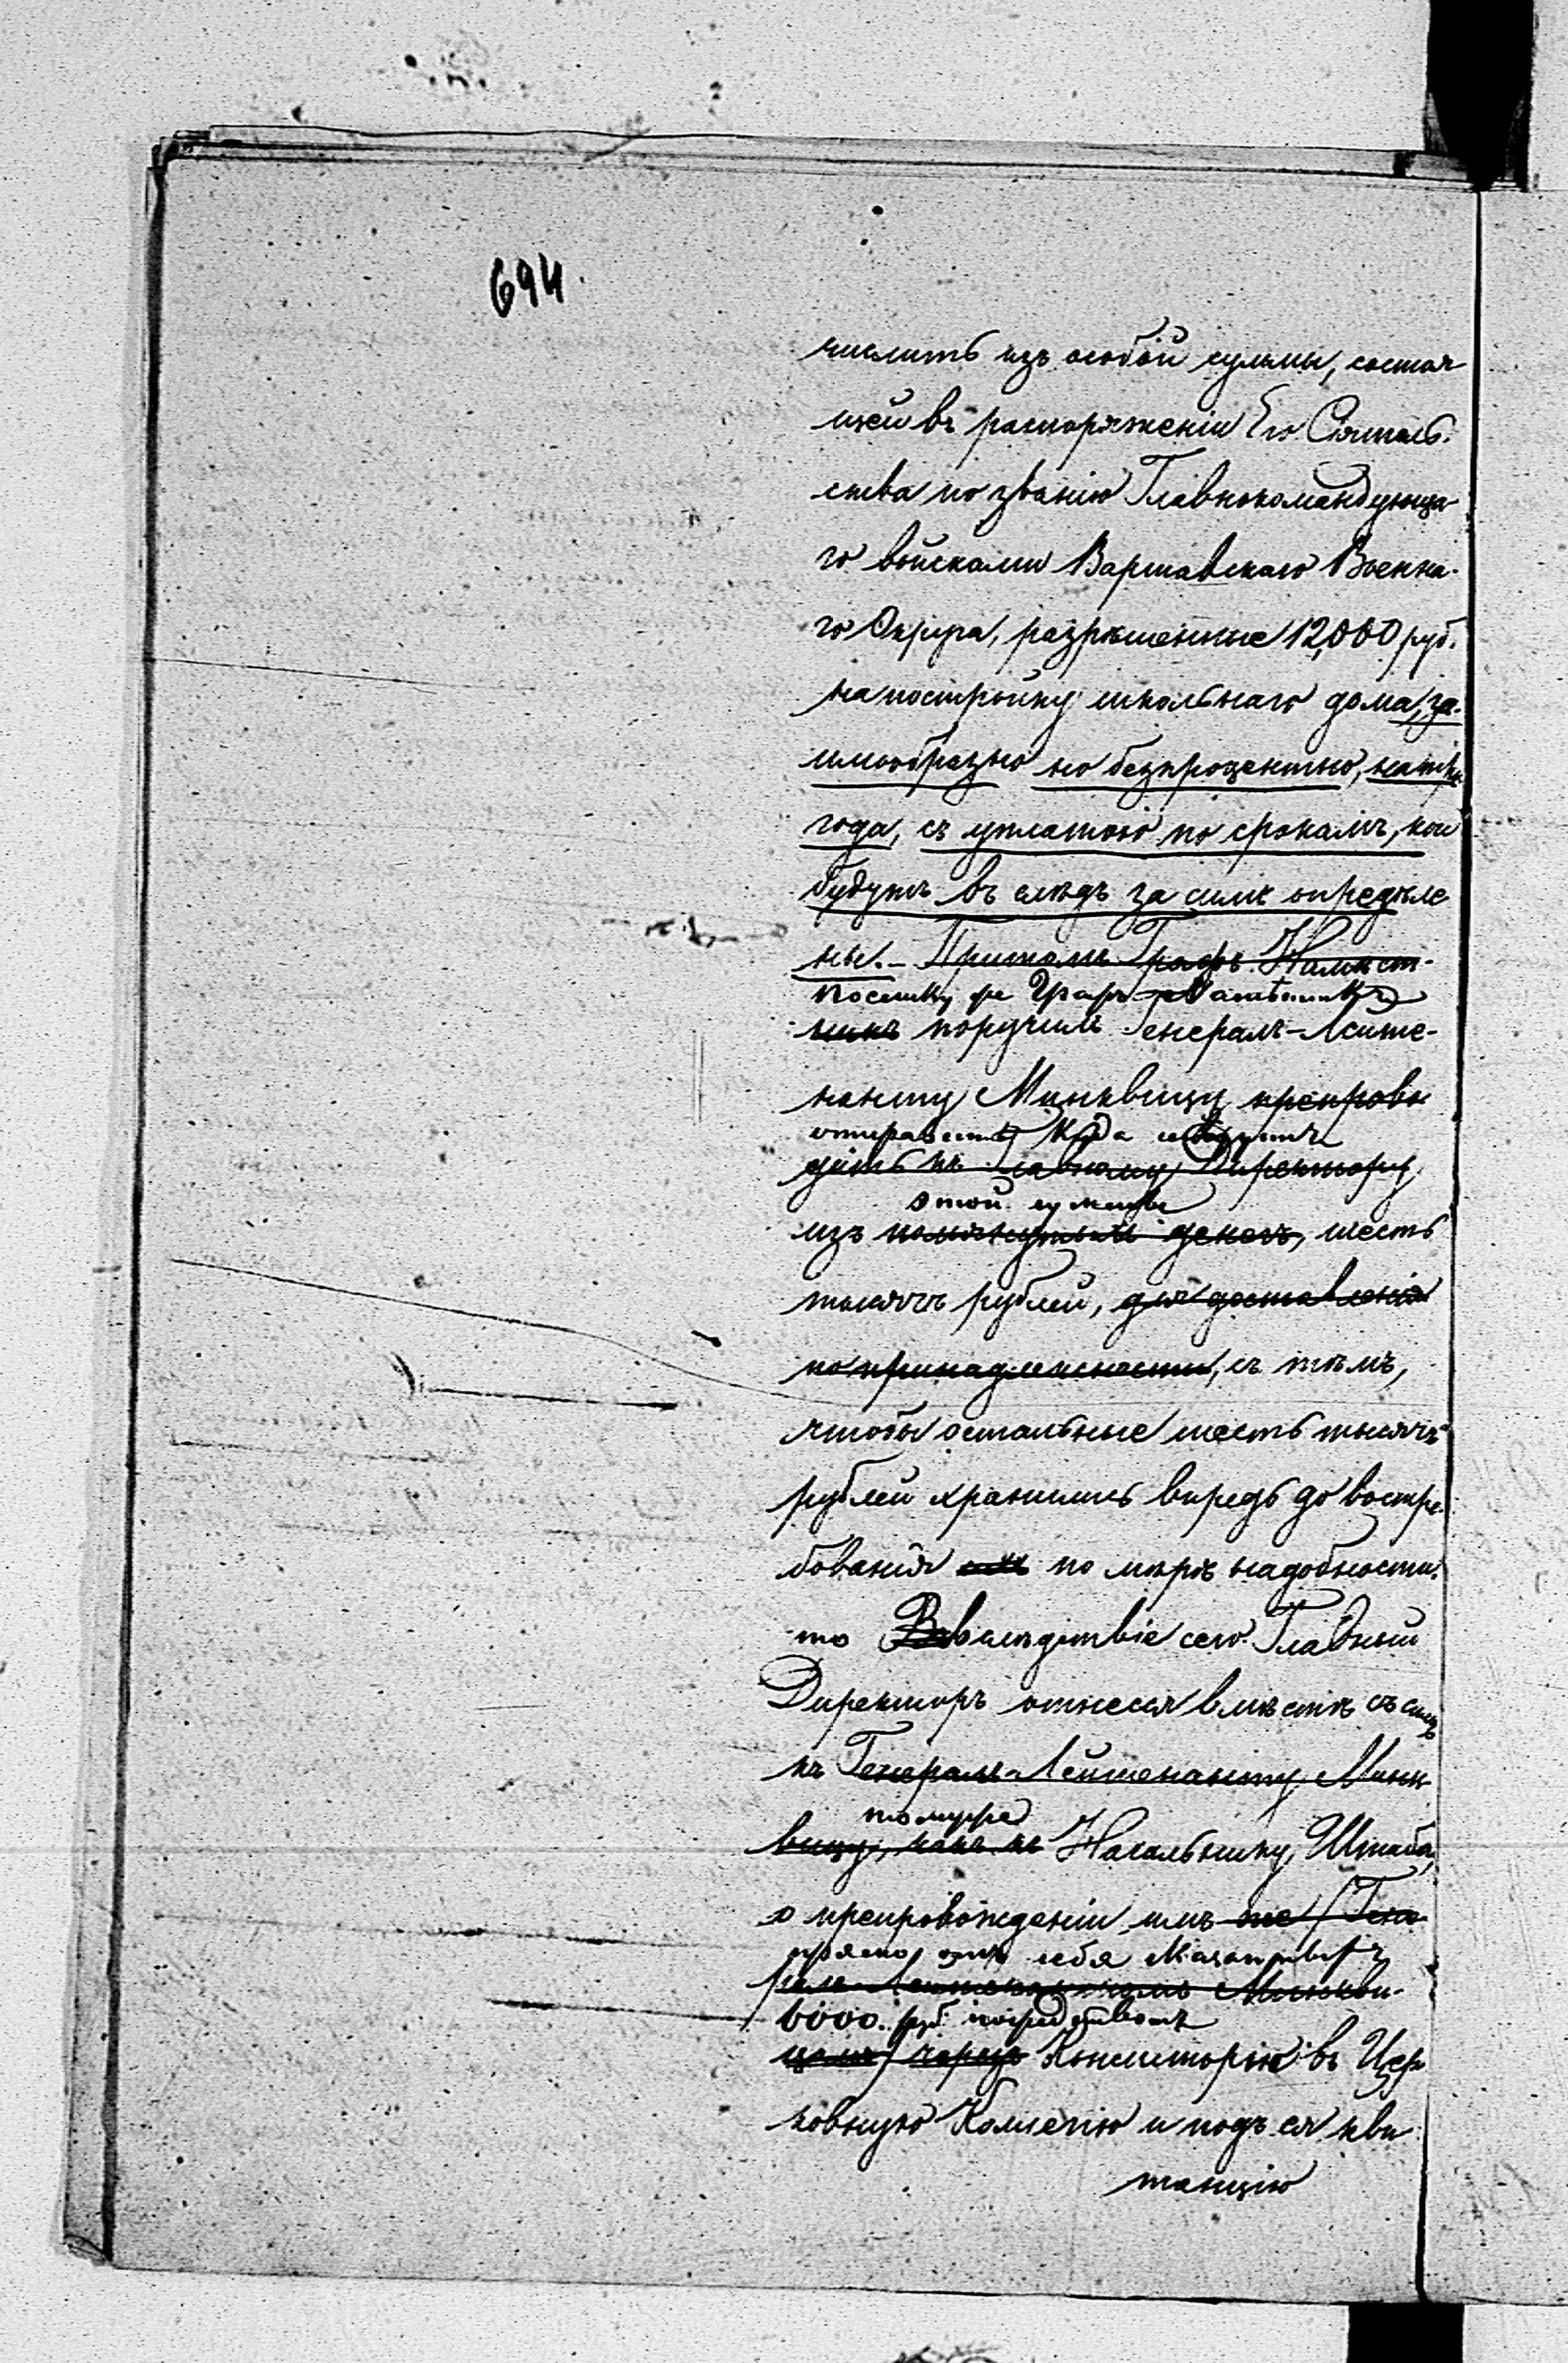 694.
числить изъ особой суммы, состоя
щей въ распоряженіи Его Сіятель-
ства по званію Главнокомандующа
го войсками Варшавскаго Военна-
го Округа, разрѣшенные 12,000 руб.
на постройку школьнаго дома, за-
имообразно но безпроцентно, на три
года, съ уплатою по срокамъ, кои
будутъ въ слѣдъ за симъ опредѣле
ны. – Притомъ Графъ Намѣст-
Поелику же Графъ Намѣстникъ
никъ поручилъ Генералъ-Лейте-
нанту Минквицу препрово
отправить куда слѣдуетъ
дить къ Главному Директору
этой суммы
изъ помянутыхъ денегъ, шесть
тысячъ рублей, для доставленія
по принадлежности, съ тѣмъ,
чтобы остальные шесть тысячъ
рублей хранились впредь до востре-
бованія по мѣрѣ надобности.
то Вовслѣдствіе сего Главный
Директоръ отнесся вмѣстѣ съ симъ
къ Генералъ-Лейтенанту Минк
тому же
вицу, какъ къ Начальнику Штаба,
о препровожденіи имъ же (Гене
прямо отъ себя
ралъ-Лейтенантомъ Минкви-
6000. руб. посредствомъ
цемъ) чрезъ Консисторію въ Цер
ковную Коллегію и подъ ея кви
танцію